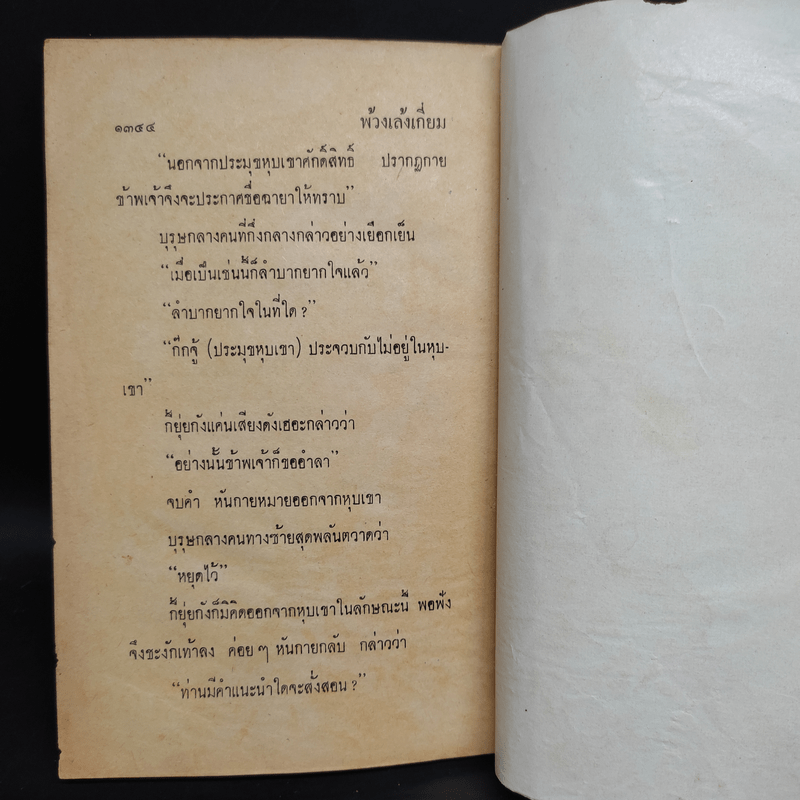 ๑๓๔๔ พ้วงเล้งเกี่ยม
“นอกจากประมุขหุบเขาศักดิ์สิทธิ์ ปรากฏกาย
ข้าพเจ้าจึงจะประกาศชื่อฉายาให้ทราบ”
บุรุษกลางคนที่กึ่งกลางกล่าวอย่างเยือกเย็น
“เมื่อเป็นเช่นนี้ก็ลำบากยากใจแล้ว”
“ลำบากยากใจในที่ใด ?”
“ก๊กจู้ (ประมุขหุบเขา) ประจวบกับไม่อยู่ในหุบ-
เขา”
ก๊ยุ่ยกังแค่นเสียงดังเฮอะกล่าวว่า
“อย่างนั้นข้าพเจ้าก็ขออำลา”
จบคำ หันกายหมายออกจากหุบเขา
บุรุษกลางคนทางซ้ายสุดพลันตวาดว่า
“หยุดไว้”
ก๊ยุ่ยกังก็มิคิดออกจากหุบเขาในลักษณะนี้ พอฟัง
จึงชะงักเท้าลง ค่อย ๆ หันกายกลับ กล่าวว่า
“ท่านมีคำแนะนำใดจะสั่งสอน ?”